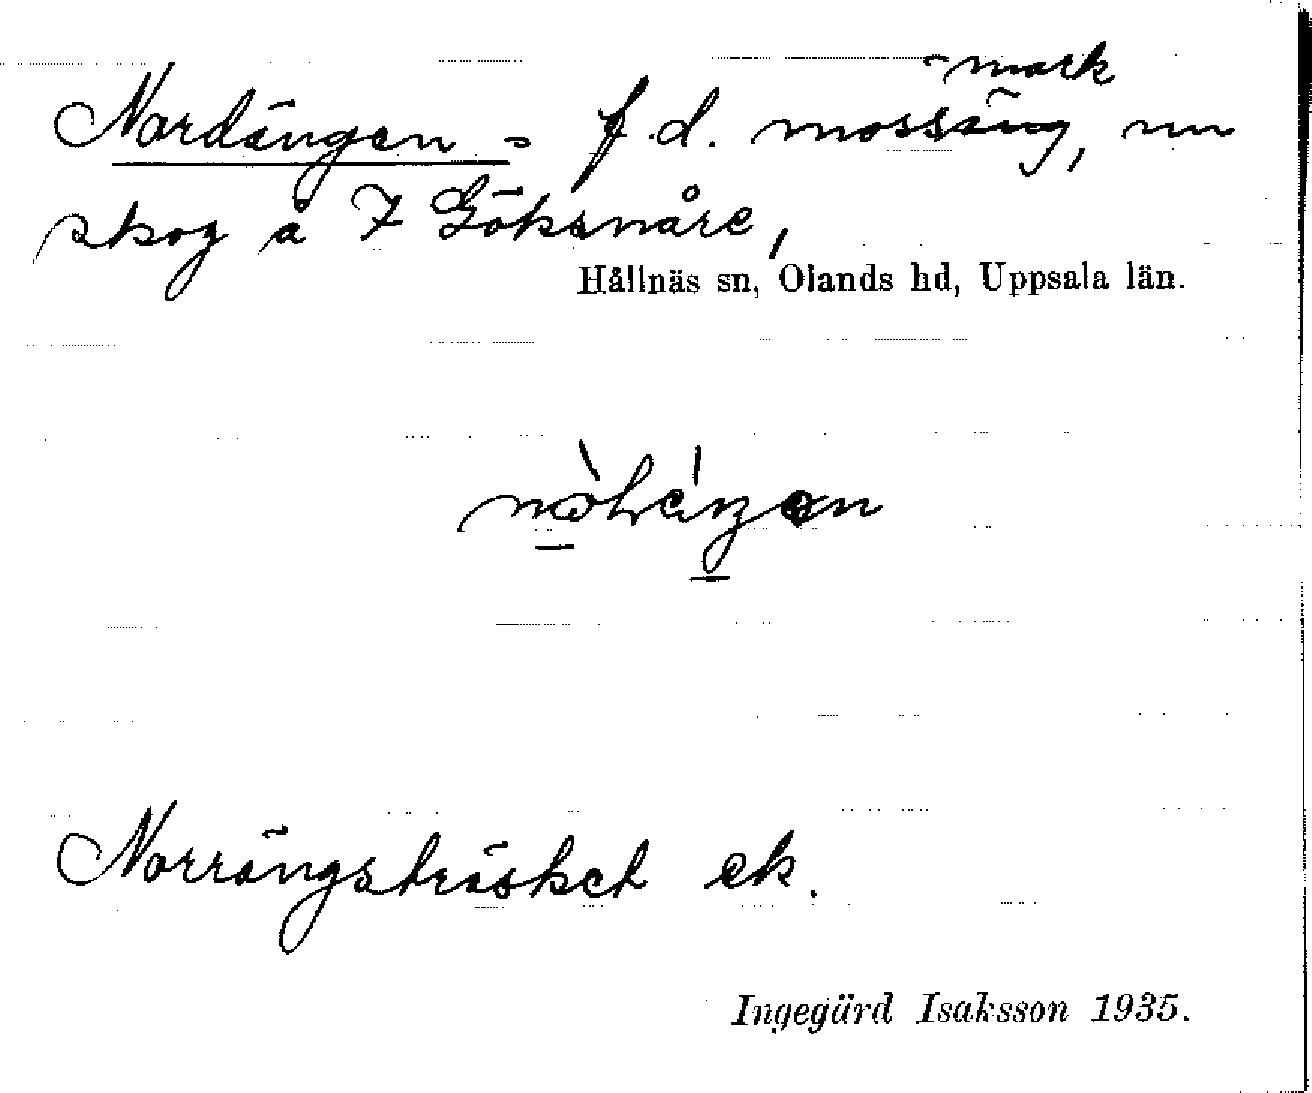 -mark
Nordängen = f.d. mossäng, nu
skog å 7 Göksnåre,
Hållnäs sn, Olands hd, Uppsala län.
Norrängsträsket ek.
Ingegärd Isaksson 1935.